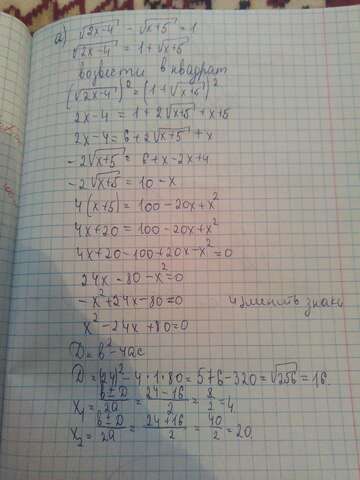 а) √2x-4 - √x+5 = 1
√2x-4 = 1+√x+5
возвести в квадрат
(√2x-4)² = (1+√x+5)²
2x-4 = 1+2√x+5 + x+5
2x-4 = 6+2√x+5 + x
-2√x+5 = 6+x-2x+4
-2√x+5 = 10-x
4(x+5) = 100-20x+x²
4x+20 = 100-20x+x²
4x+20-100+20x-x²=0
24x-80-x²=0
-x²+24x-80=0 изменить знаки
x²-24x+80=0
D=b²-4ac
D=(24)²-4·1·80=576-320=√256=16
x₁=b±D/2a=24-16/2=8/2=4
x₂=b±D/2a=24+16/2=40/2=20